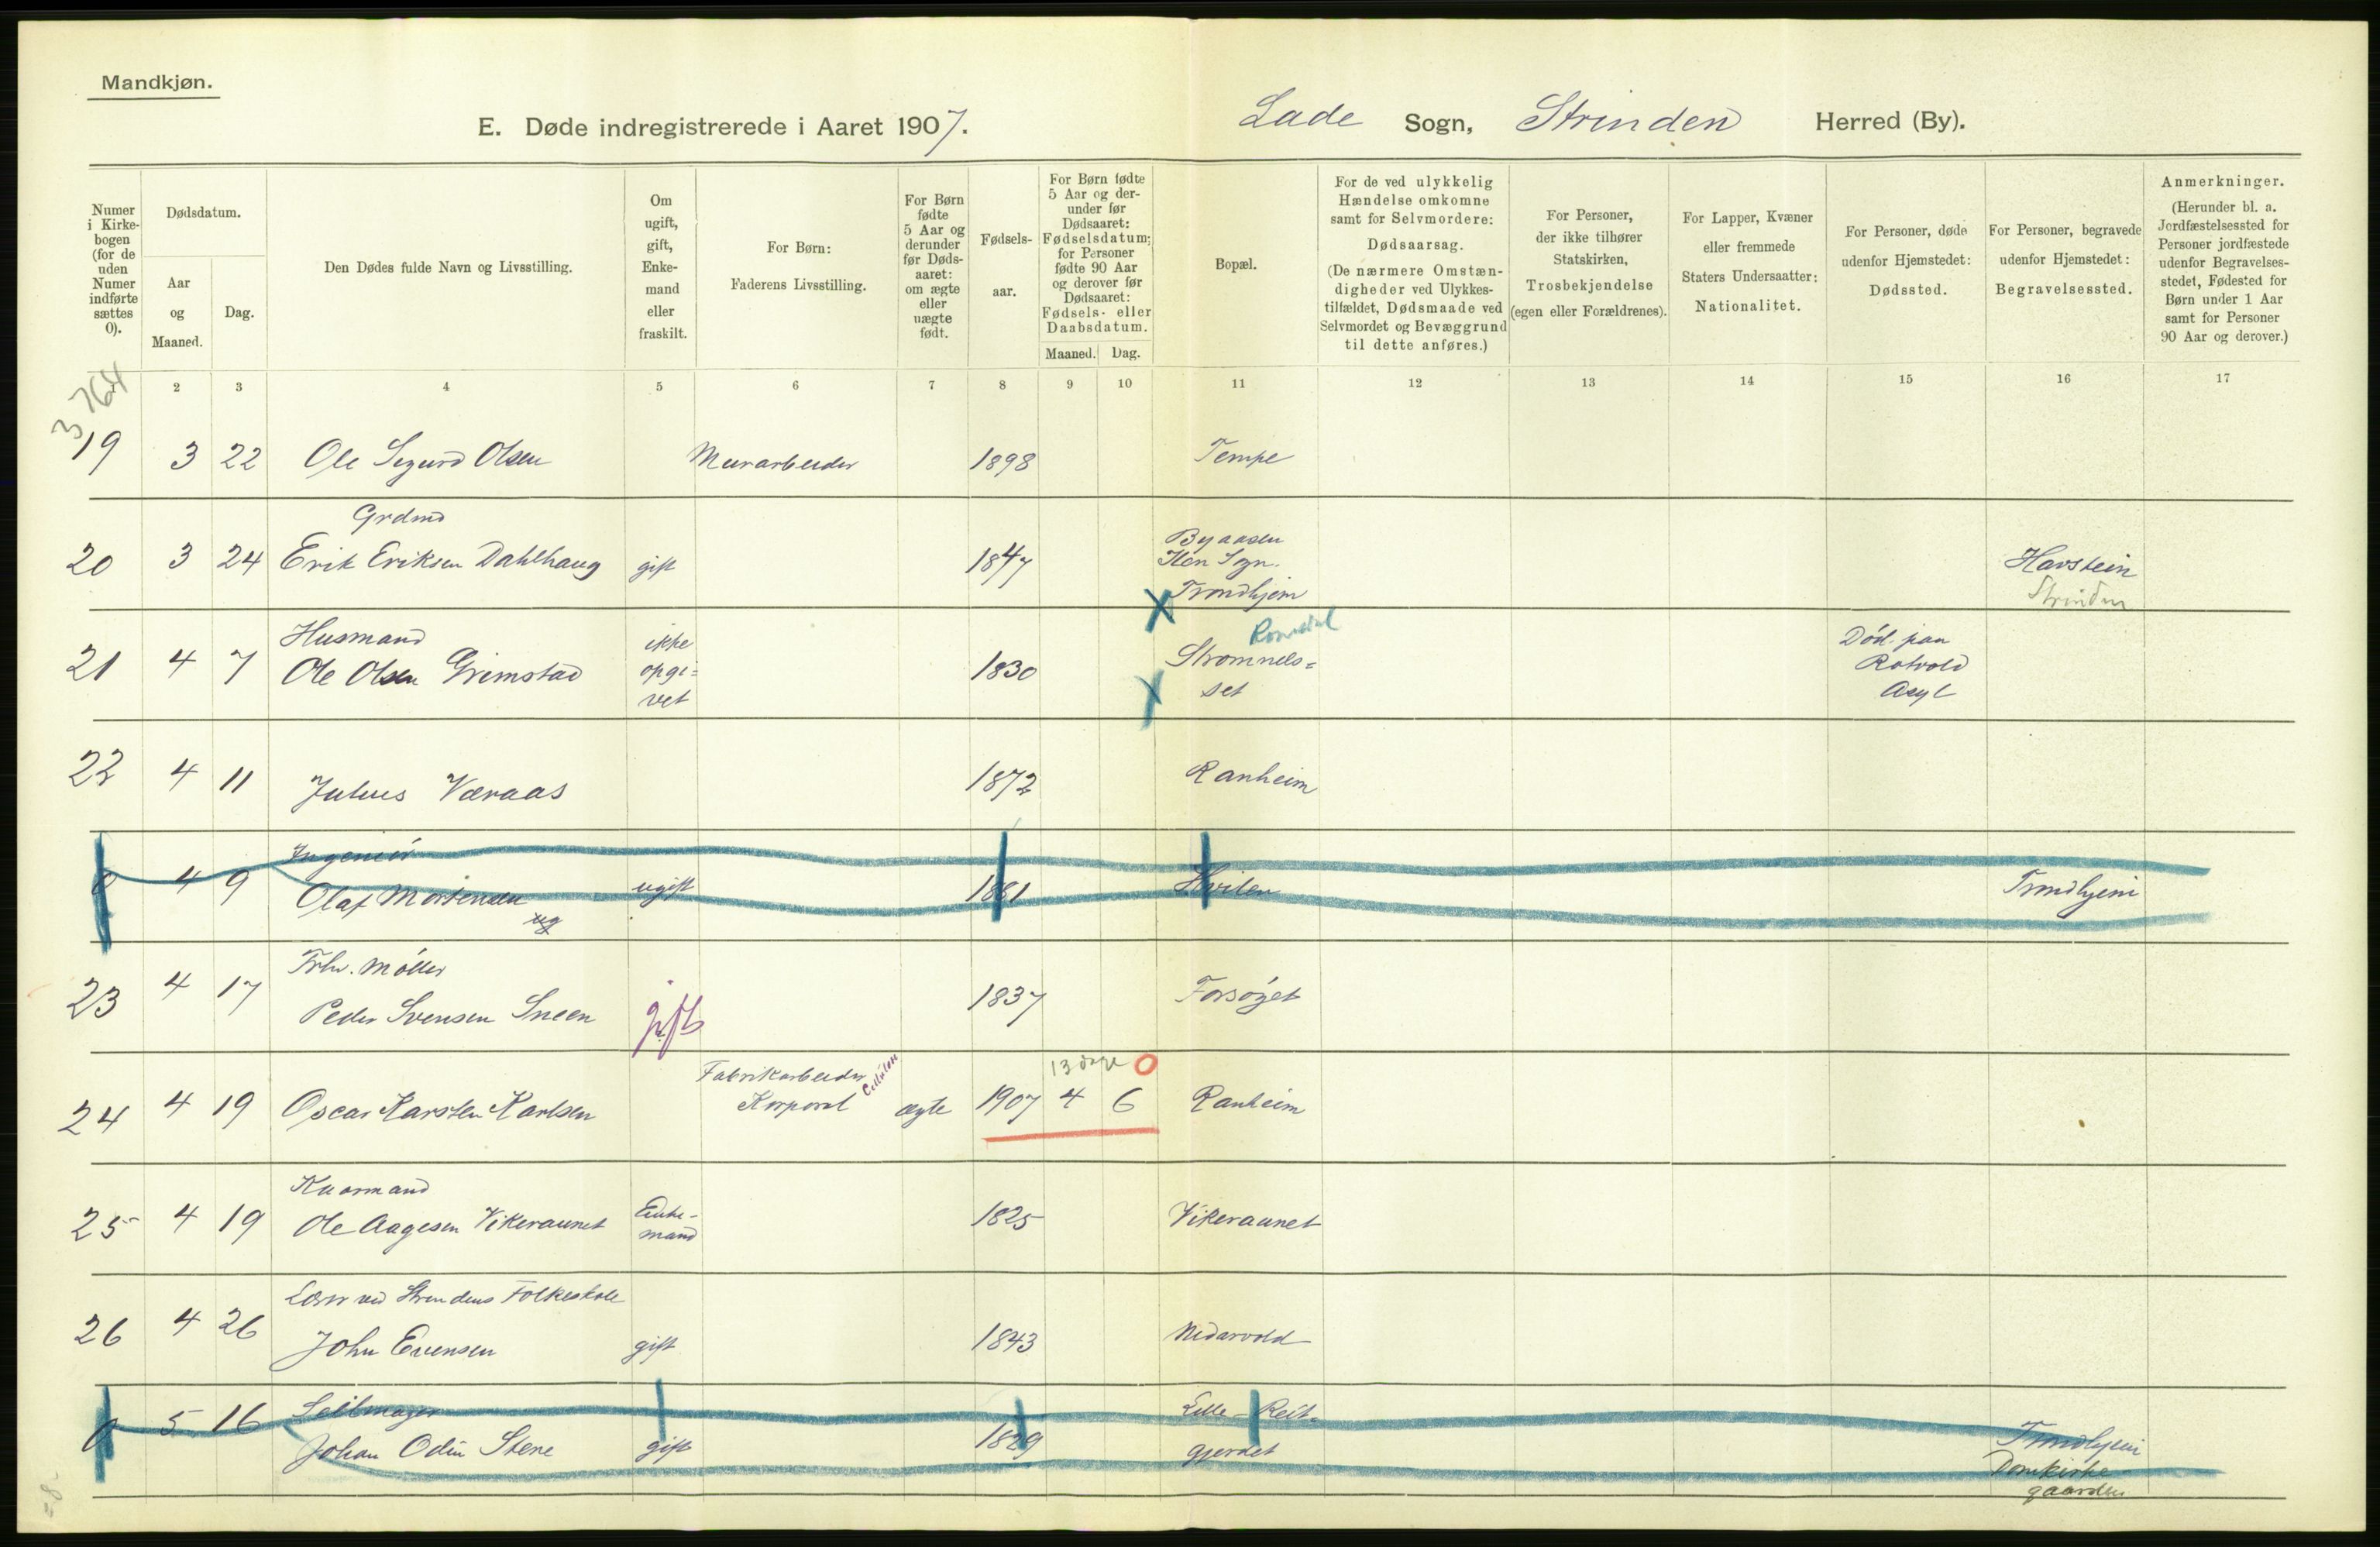 Mandkjøn.
E. Døde indregistrerede i Aaret 1907.
Lade Sogn, Strinden Herred (By).
Numer i Kirkebogen (for de uden Numer indførte sættes 0).
Dødsdatum.
Aar og Maaned.
Dag.
Den Dødes fulde Navn og Livsstilling.
Om ugift, gift, Enkemand eller fraskilt.
For Børn:
Faderens Livsstilling.
For Børn fødte 5 Aar og derunder før Dødsaaret: om ægte eller uægte født.
Fødselsaar.
For Børn fødte 5 Aar og derunder før Dødsaaret: Fødselsdatum; for Personer fødte 90 Aar og derover før Dødsaaret: Fødsels- eller Daabsdatum.
Maaned. Dag.
Bopæl.
For de ved ulykkelig Hændelse omkomne samt for Selvmordere:
Dødsaarsag.
(De nærmere Omstændigheder ved Ulykkestilfældet, Dødsmaade ved Selvmordet og Bevæggrund til dette anføres.)
For Personer, der ikke tilhører Statskirken,
Trosbekjendelse
(egen eller Forældrenes).
For Lapper, Kvæner eller fremmede Staters Undersaatter:
Nationalitet.
For Personer, døde udenfor Hjemstedet:
Dødssted.
For Personer, begravede udenfor Hjemstedet:
Begravelsessted.
Anmerkninger.
(Herunder bl. a. Jordfæstelsessted for Personer jordfæstede udenfor Begravelsesstedet, Fødested for Børn under 1 Aar samt for Personer 90 Aar og derover.)
3764
2 3 4 5 6 7 8 9 10 11 12 13 14 15 16 17
19 3 22 Ole Sigurd Olsen Murarbeider 1898 Tempe
Grdmd
20 3 24 Erik Eriksen Dahlhaug gift 1847 Byaasen
Ilen Sgn.
Trondhjem
Havstein
Strinden
Husmand
21 4 7 Ole Olsen Grimstad ikke
opgi=
vet
1830 Romsdal
Stromnels=
set
Död paa
Rotvold
Asyl
22 4 11 Julius Væraas 1872 Ranheim
Ingeniör
0 4 9 Olaf Mortensen ugift 1881 Hvilen Trondhjem
ug
Fhv. Möller
23 4 17 Peder Svensen Sneen gift 1837 Forsöget
Fabrikarbeider Cellulose 13 dage 0
24 4 19 Oscar Karsten Karlsen Korporal ægte 1907 4 6 Ranheim
Kaarmand
25 4 19 Ole Aagesen Vikeraunet Enke-
mand
1825 Vikeraunet
Lærer ved Strindens Folkeskole
26 4 26 John Evensen gift 1843 Nidarvold
Seilmager
0 5 16 Johan Odin Stene gift 1829 Lille-Reit=
gjerdet
Trondhjem
Domkirke
gaarden